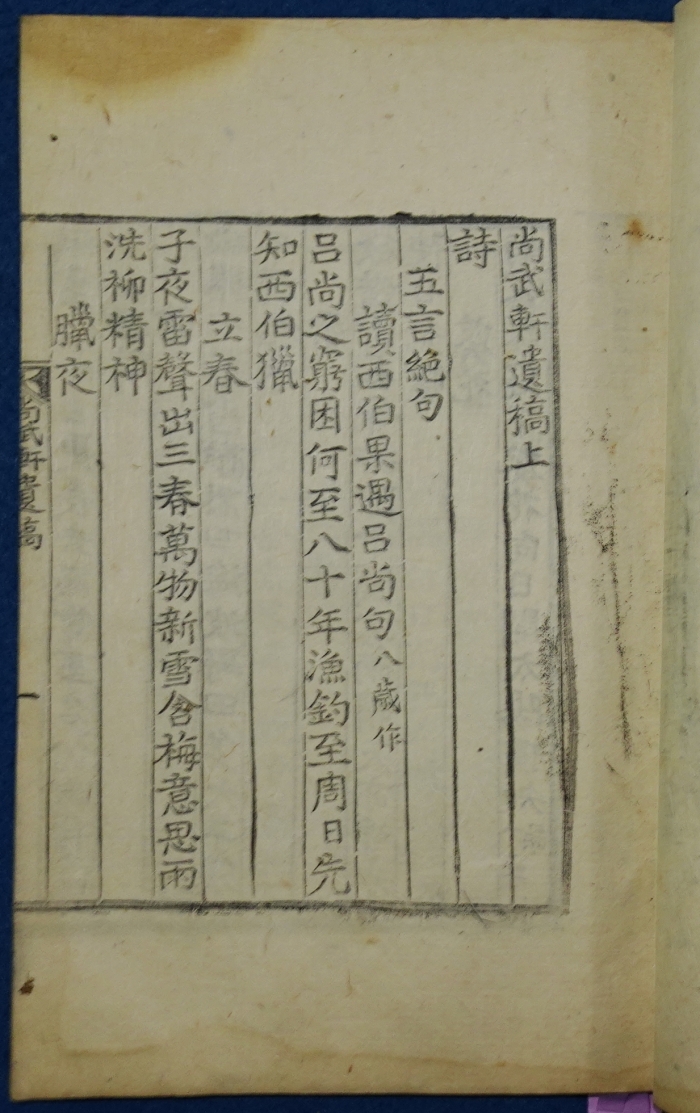 尚武軒遺稿上
詩
五言絶句
讀西伯果遇吕尚句八歲作
吕尚之窮困何至八十年漁釣至周日先
知西伯獵
立春
子夜雷聲出三春萬物新雪含梅意思雨
洗柳精神
臘夜
尚武軒遺稿
一